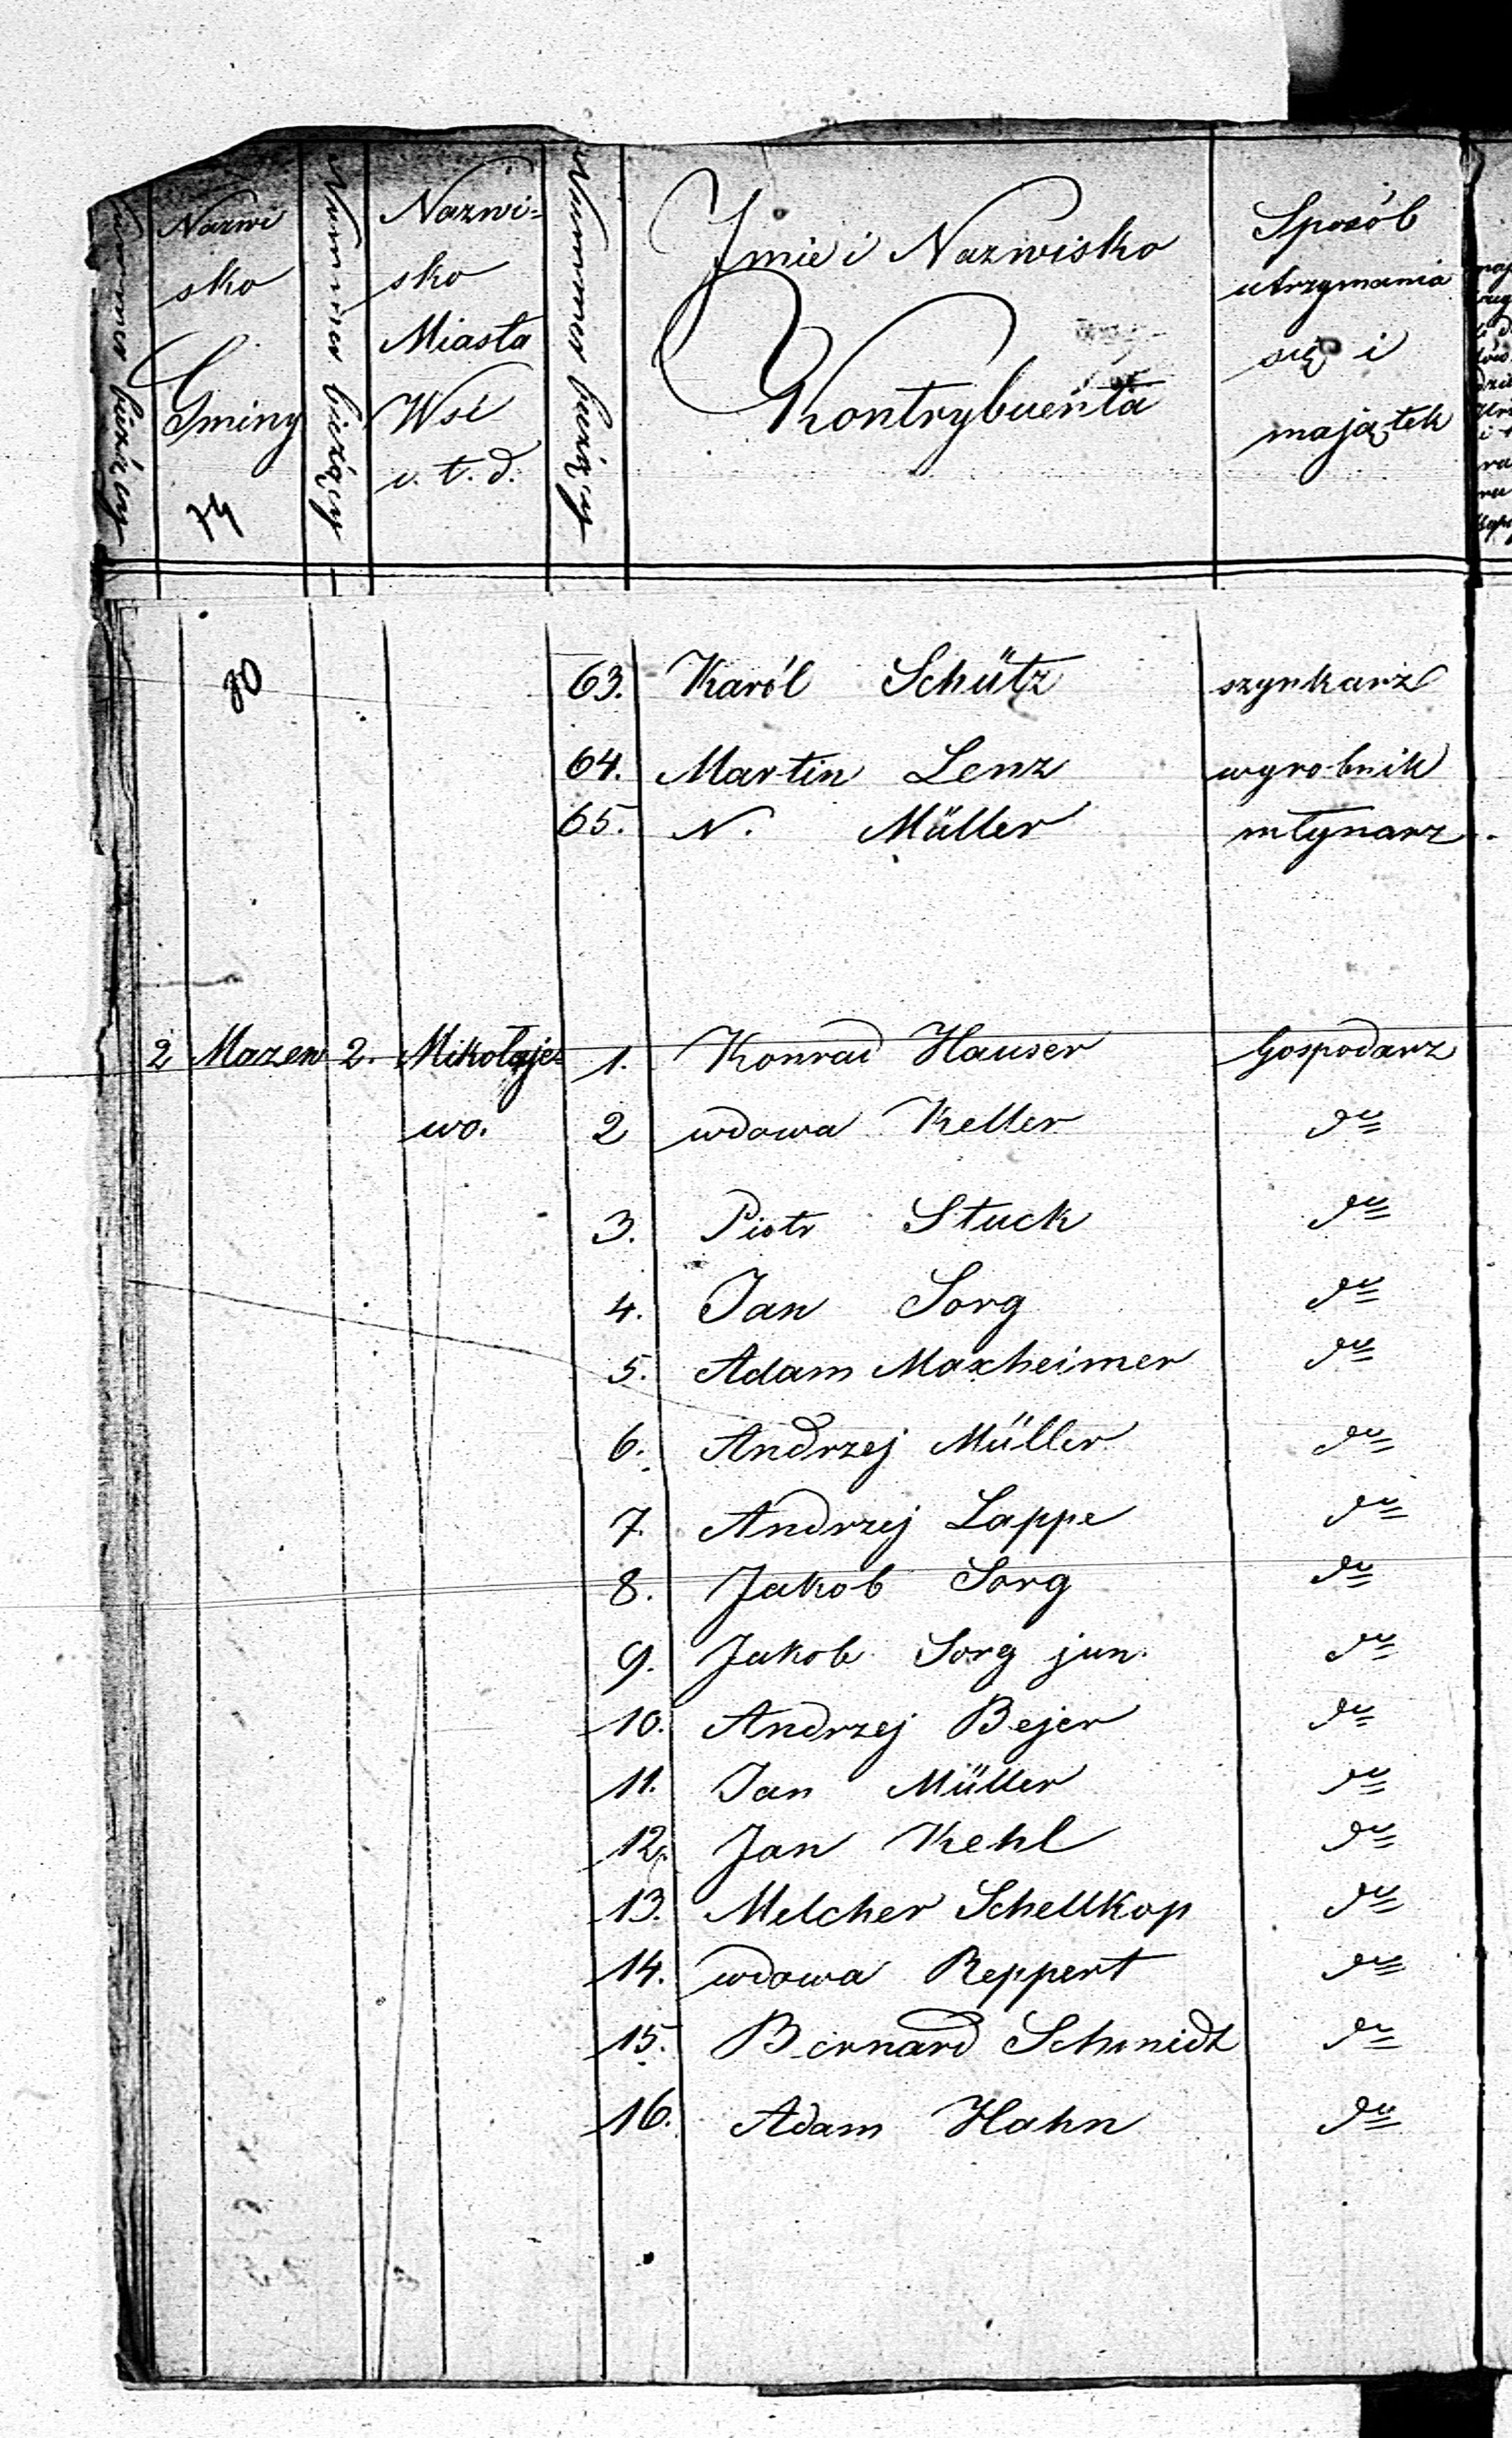 Nummer bieżący
Nazwi
sko
Gminy
74
Nummer bieżący
Nazwi=
sko
Miasta
Wsi
i. t. d.
Nummer bieżący
Jmie i Nazwisko
Kontrybuenta
Sposób
utrzymania
się i
majątek
80
63. Karól Schütz szynkarz
64. Martin Lenz wyrobnik
65. N. Müller młynarz
2 Mazew 2. Mikołaje= 1. Konrad Hauser Gospodarz
wo. 2 wdowa Keller do
3. Piotr Stuck do
4. Jan Sorg do
5. Adam Maxheimer do
6. Andrzej Müller do
7. Andrzej Lappe do
8. Jakob Sorg do
9. Jakob Sorg jun. do
10. Andrzej Bejer do
11. Jan Müller do
12. Jan Kehl do
13. Melcher Schellkop do
14. wdowa Reppert do
15. Bernard Schmidt do
16. Adam Hahn do